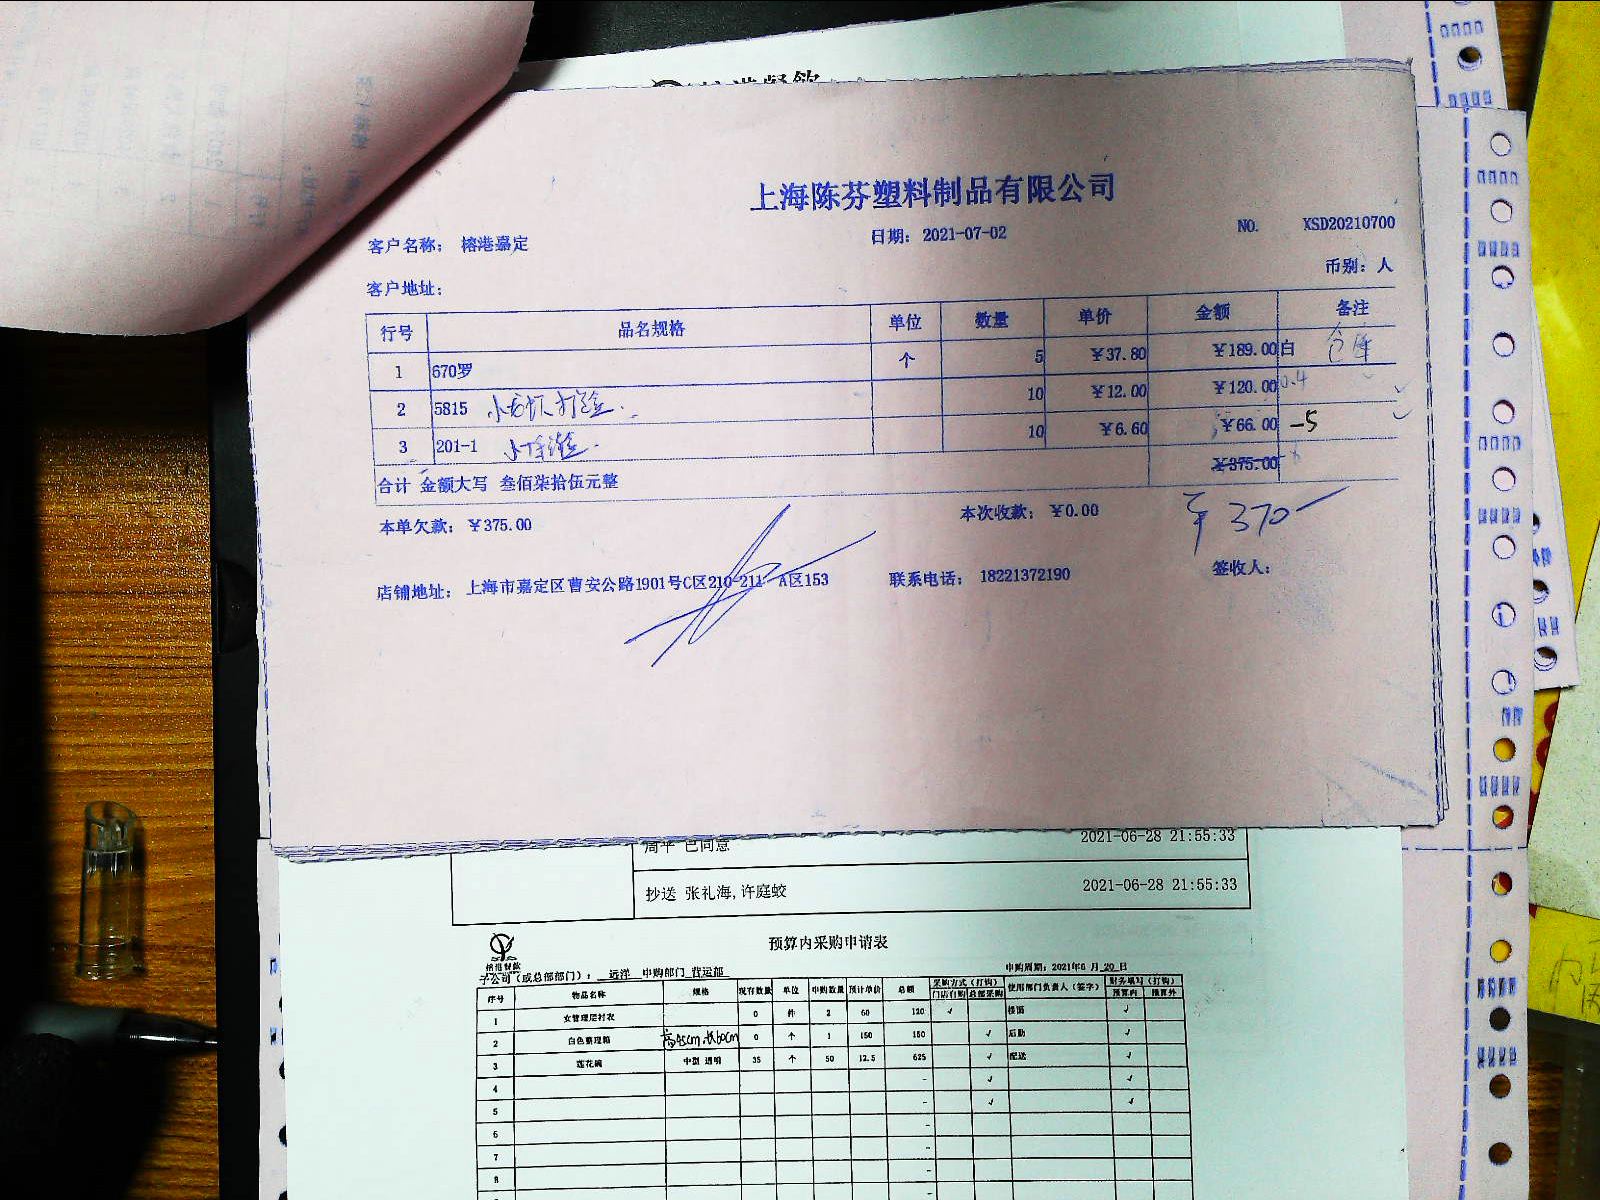 上海陈芬塑料制品有限公司
客户名称： 榕港嘉定 日期： 2021-07-02 NO. XSD20210700
客户地址： 币别：人
行号 品名规格 单位 数量 单价 金额 备注
1 670罗 个 5 ￥37.80 ￥189.00 白
2 5815 10 ￥12.00 ￥120.00
3 201-1 10 ￥6.60 ￥66.00 -5
合计 金额大写 叁佰柒拾伍元整 ￥375.00
本单欠款：￥375.00 本次收款：￥0.00 ￥370
店铺地址： 上海市嘉定区曹安公路1901号C区210-211 A区153 联系电话： 18221372190 签收人：
周平 已同意 2021-06-28 21:55:33
抄送 张礼海,许庭蛟 2021-06-28 21:55:33
预算内采购申请表
子公司（或总部部门）： 远洋 申购部门 营运部 申购周期：2021年6月20日
序号 物品名称 规格 现有数量 单位 申购数量 预计单价 总额 采购方式（打钩） 使用部门负责人（签字） 财务填写（打钩）
门店自购 总部采购 预算内 预算外
1 女管理层衬衣 0 件 2 60 120 √ 楼面 √
2 白色整理箱 高45cm.长60cm 0 个 1 150 150 √ 后勤 √
3 莲花碗 中型 透明 35 个 50 12.5 625 √ 配送 √
4 - √ √
5 - √ √
6 -
7 -
8 -